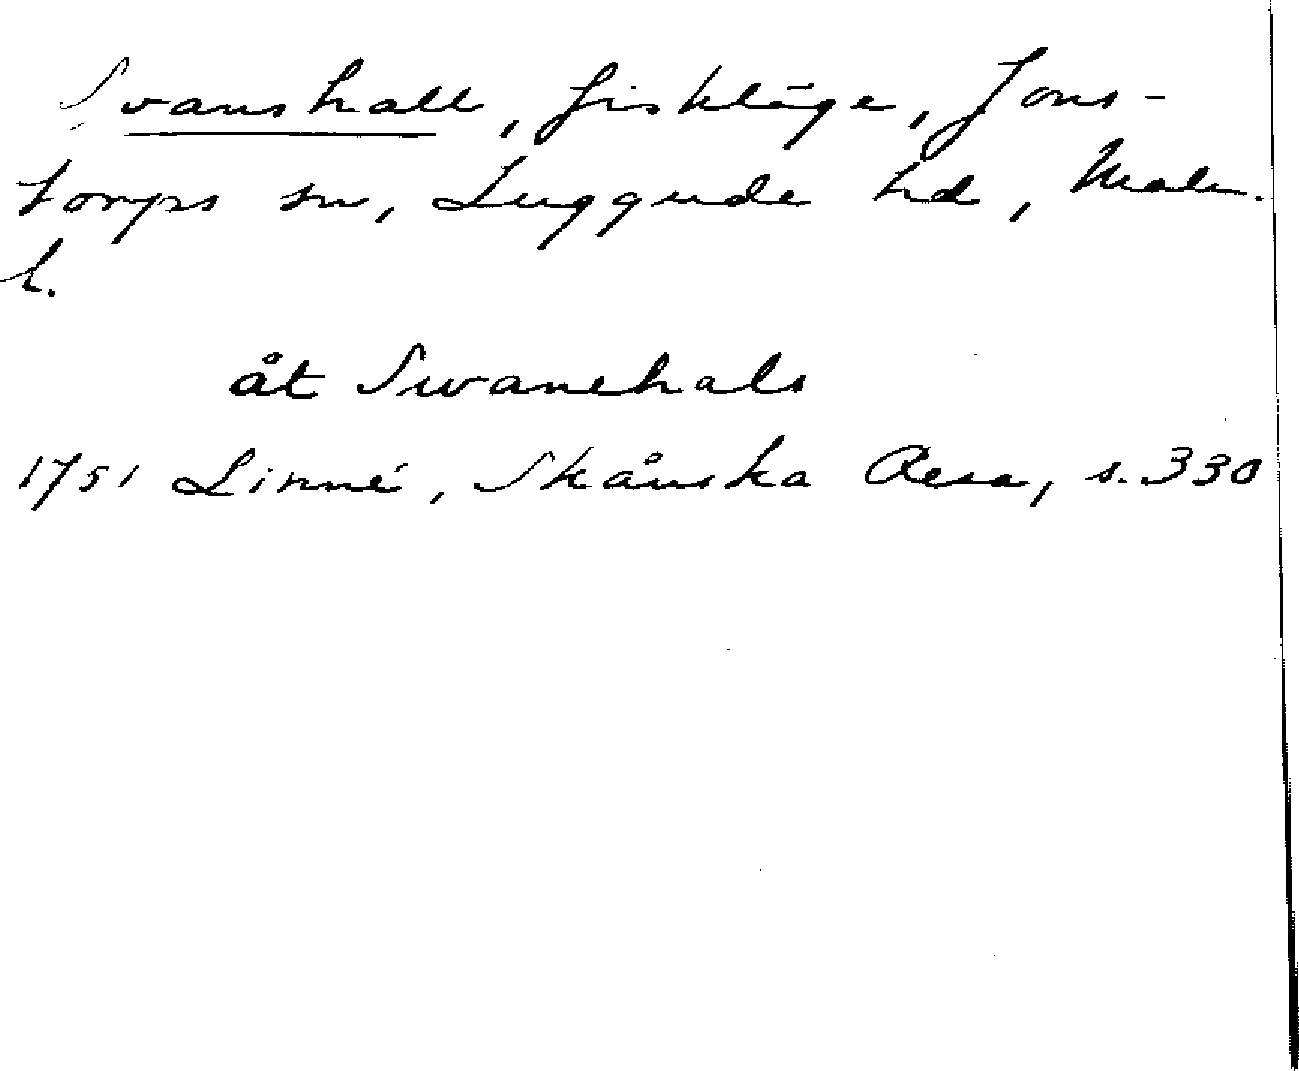 Svanshall, fiskläge, Jons-
torps sn, Luggude hd, Malm.
l.
åt Swanehals
1751 Linné, Skånska Resa, s. 330